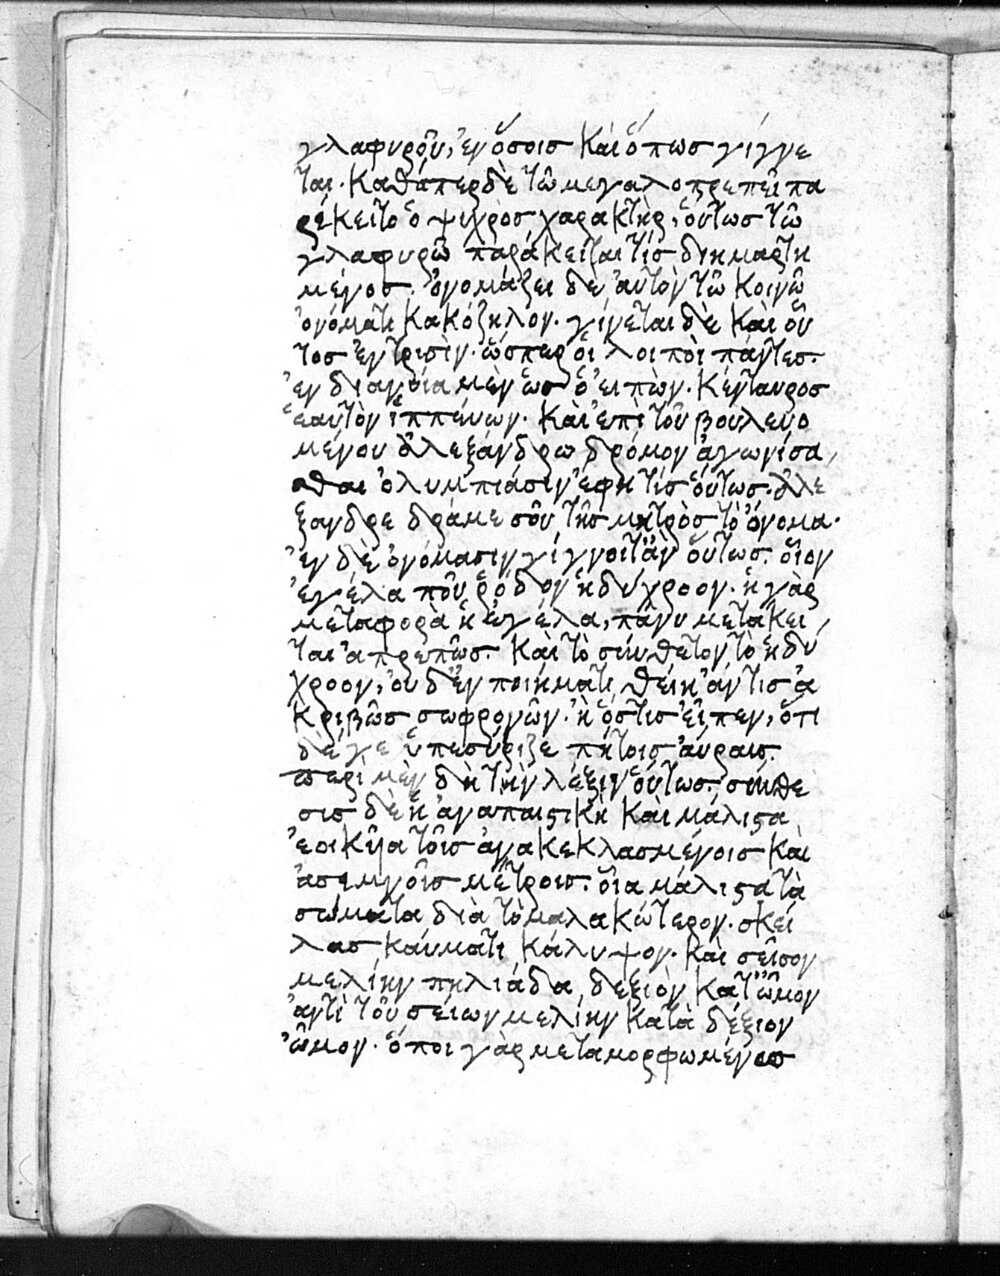 γλαφυροῦ, ἐν ὅσοις καὶ ὅπως γίγνε
ται. καθάπερ δὲ τῶ μεγαλοπρεπεῖ πα
ρέκειτο ὁ ψυχρὸσ χαρακτὴρ, οὕτως τῶ
γλαφυρῶ παράκειταί τις διημαρτη
μένος. ὀνομάζει δὲ αὐτὸν τῶ κοινῶ
ὀνόματι κακόζηλον. γίνεται δὲ καὶ οὗ
τος ἐν τρισὶν. ὥσπερ οἱ λοιποὶ πάντες.
ἐν διανοία μὲν ὡς ὁ εἰπὼν. κένταυρος
ἑαυτὸν ἱππεύων. καὶ ἐπὶ τοῦ βουλευο
μένου ἀλεξάνδρω δρόμον ἀγωνίσα
σθαι ὀλυμπιάσιν ἔφη τίς οὕτως. ἀλέ
ξανδρε δράμε σοῦ τῆς μητρὸς τὸ ὄνομα.
ἐν δὲ ὀνόμασιν γίγνοιτ' ἂν οὕτως. οἷον
ἐγέλα που ῥόδον ἡδύχροον. ἡ γὰρ
μεταφορὰ ἡ ἐγέλα, πάνυ μετάκει
ται ἀπρεπῶς. καὶ τὸ σύνθετον τὸ ἡδύ
χροον, οὐδ' ἐν ποιήματι θείη ἄν τις ἀ
κριβῶς σωφρονῶν. ἢ ὅστις εἶπεν, ὅτι
δέ γε ὑπεσύριζε πήτοις αὔραις.
περὶ μὲν δὴ τὴν λέξιν οὕτως. σύνθε
σις δὲ ἡ ἀναπαιστικὴ καὶ μάλιστα
ἐοικυῖα τοῖς ἀνακεκλασμένοις καὶ
ἀσέμνοις μέτροις. οἷα μάλιστα τὰ
σώματα διὰ τὸ μαλακώτερον. σκεί
λας καύματι κάλυψον. καὶ σεῖσον
μελίην πηλιάδα δεξιὸν κατ' ὦμον
ἀντὶ τοῦ σείων μελίην κατὰ δέξιον
ὦμον. ὁποι γὰρ μεταμορφωμένος